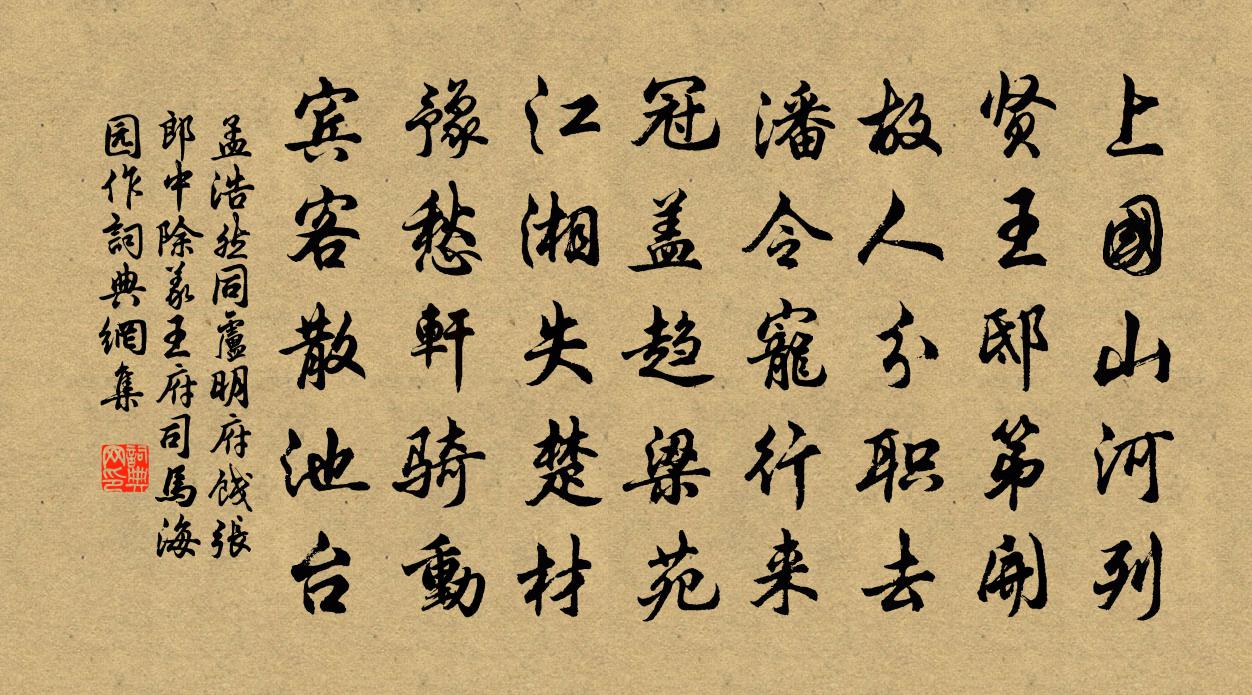 上國山河列
贤王邸第開
故人分职去
潘令寵行来
冠盖趋梁苑
江湘失楚材
豫愁軒骑動
宾客散池台
孟浩然同盧明府饯張
郎中除義王府司馬海
园作詞典網集
詞典网印